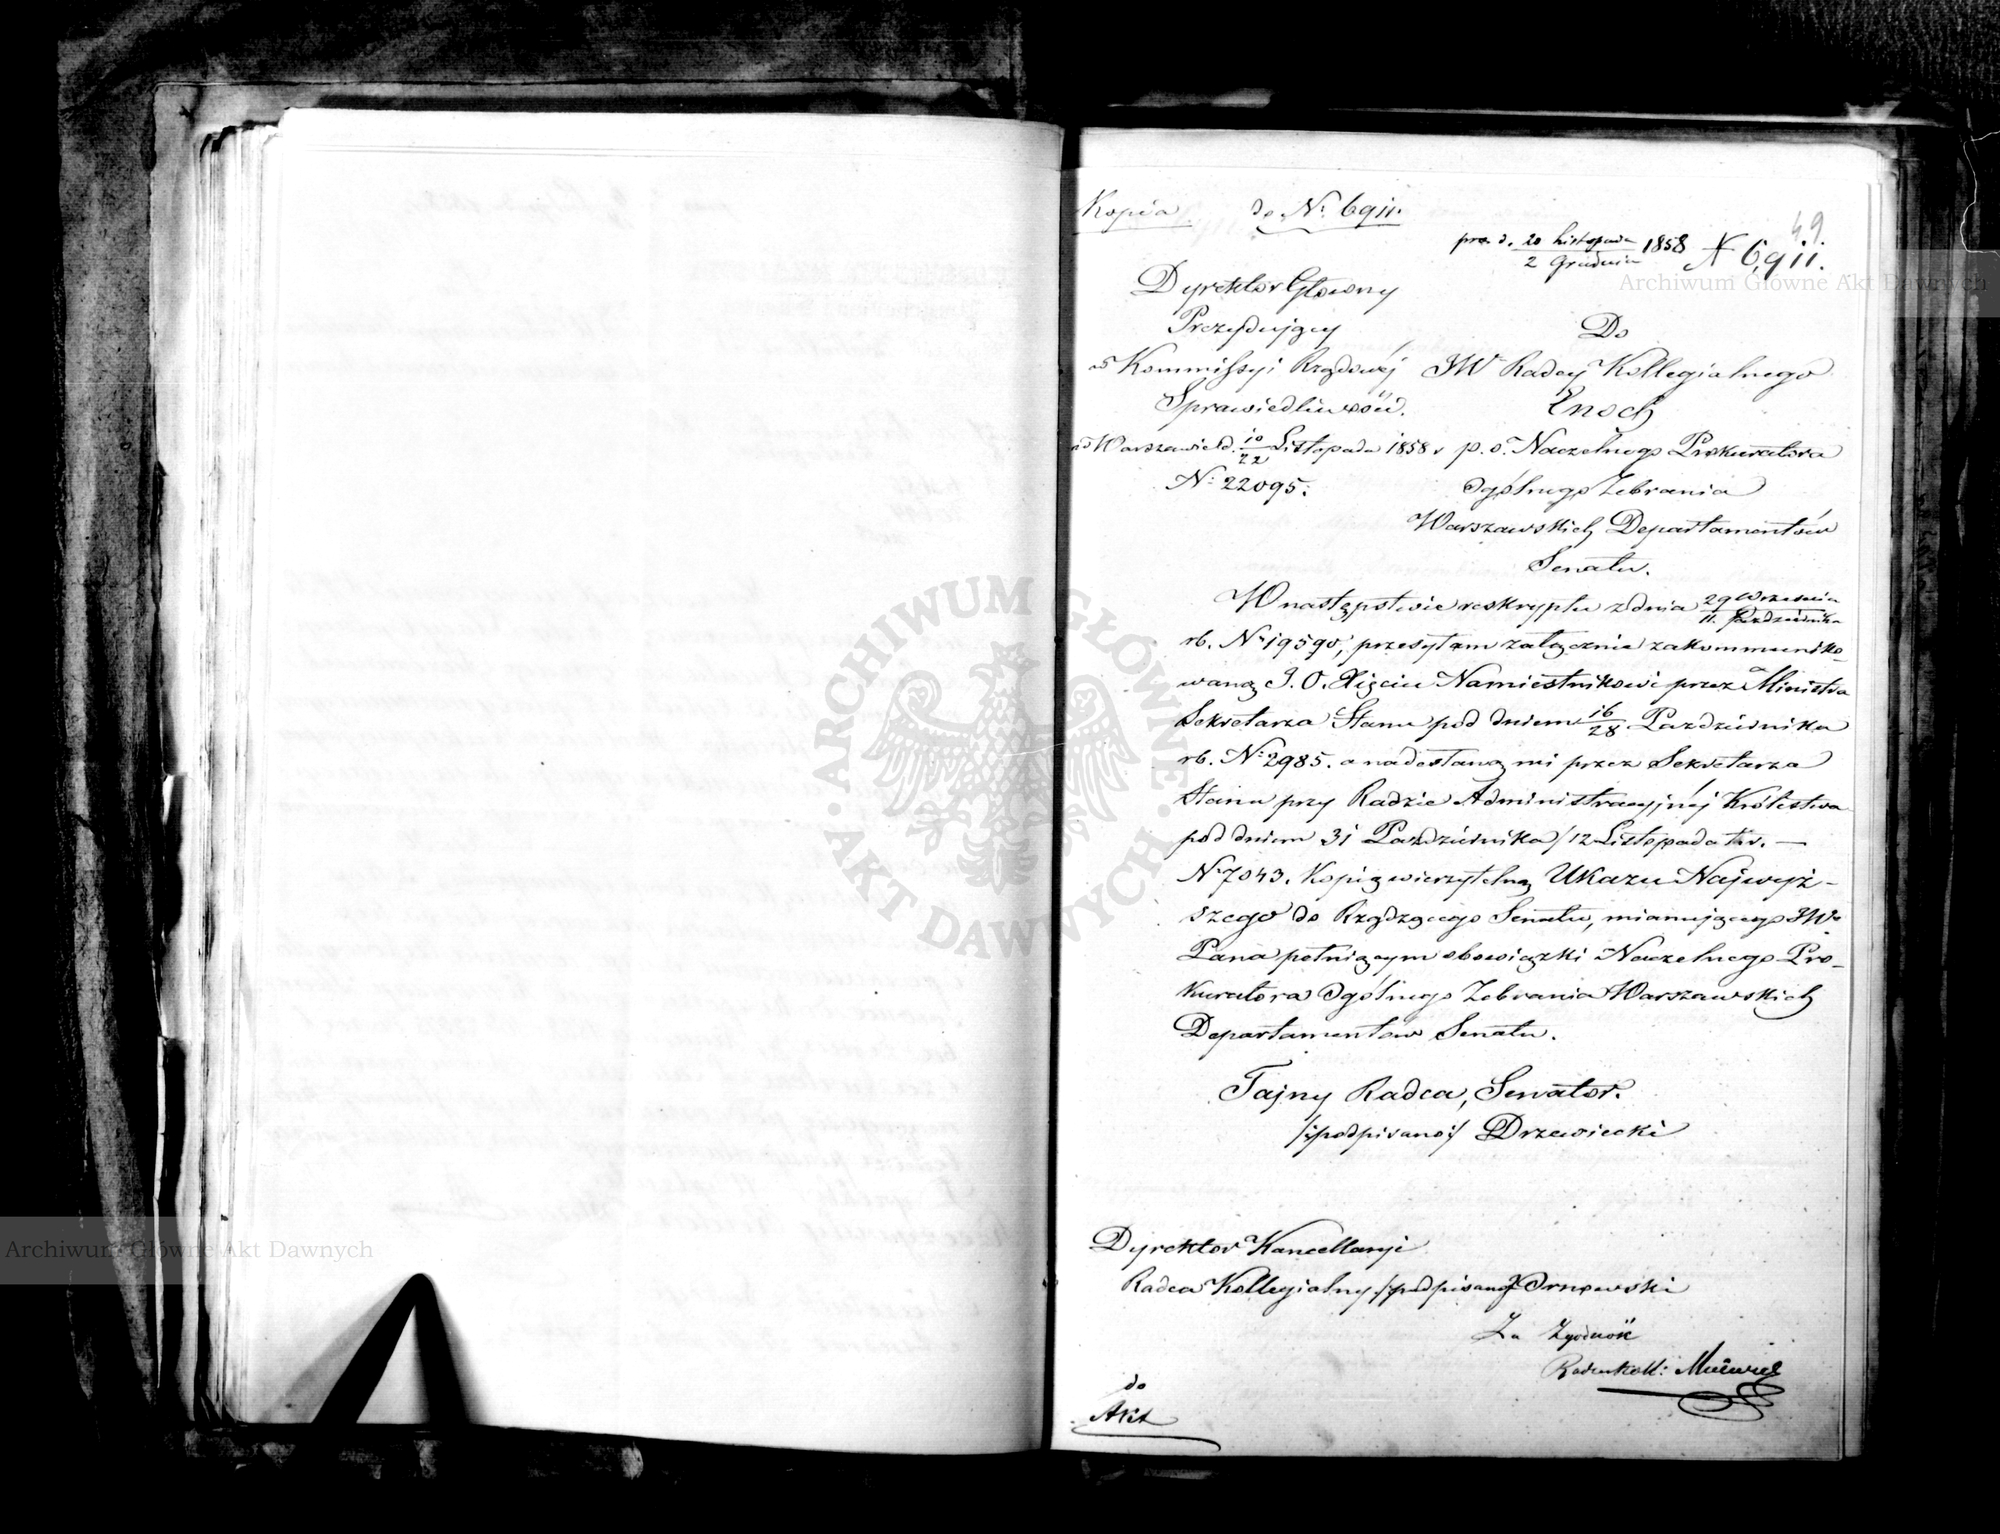 Kopia do Nr 6911.
49.
prez. d. 20 Listopada / 2 Grudnia 1858 N 6911.
Dyrektor Głowny
Prezydujący
w Kommissyi Rządowéj
Sprawiedliwości.
w Warszawie d. 10/22 Listopada 1858 r.
N: 22095.
Do
JW Radcy Kollegialnego
Enoch
p. o. Naczelnego Prokuratora
Ogólnego Zebrania
Warszawskich Departamentów
Senatu.
W następstwie reskryptu z dnia 29 Września / 11. Października
rb. Nr 19590, przesyłam załącznie zakommuniko-
waną J. O. Xięciu Namiestnikowi przez Ministra
Sekretarza Stanu pod dniem 16/28 Października
rb. Nr 2985. a nadesłaną mi przez Sekretarza
Stanu przy Radzie Administracyjnéj Królestwa
pod dniem 31 Października / 12 Listopada t.r. —
Nr 7043. Kopię wierzytelną Ukazu Najwyż-
szego do Rządzącego Senatu, mianującego JW.
Pana pełniącym obowiązki Naczelnego Pro-
kuratora Ogólnego Zebrania Warszawskich
Departamentów Senatu.
Tajny Radca, Senator.
/:podpisano:/ Drzewiecki
Dyrektor Kancellaryi
Radca Kollegialny /:podpisano:/ Ornowski
Za Zgodność
Radca Koll:
do
Akt
Archiwum Główne Akt Dawnych
Archiwum Główne Akt Dawnych
ARCHIWUM GŁÓWNE · AKT DAWNYCH ·